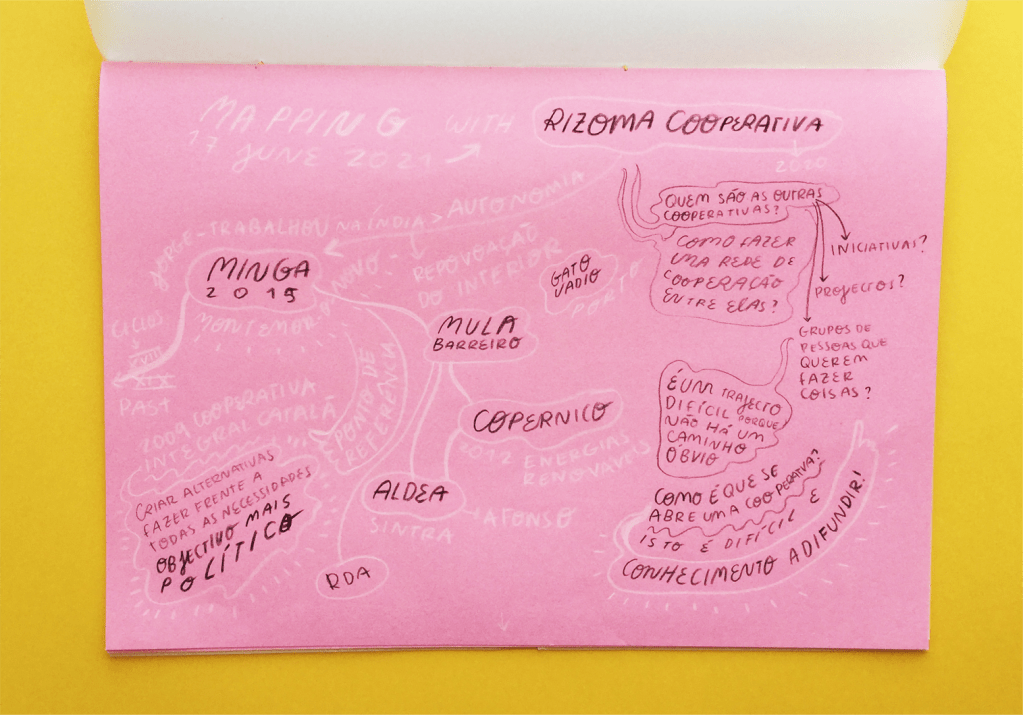 MAPPING WITH RIZOMA COOPERATIVA
17 JUNE 2021
2020
JORGE - TRABALHOU NA ÍNDIA > AUTONOMIA
MINGA
2015
MONTEMOR-O-NOVO
REPOVOAÇÃO
DO INTERIOR
GATO
VADIO
PORTO
CICLOS
XVIII
XIX
PAST
MULA
BARREIRO
É PONTO DE
REFERÊNCIA
2009 COOPERATIVA
INTEGRAL CATALÃ
CRIAR ALTERNATIVAS
FAZER FRENTE A
TODAS AS NECESSIDADES
OBJECTIVO MAIS
POLÍTICO
COPERNICO
2012 ENERGIAS
RENOVÁVEIS
ALDEA
SINTRA
AFONSO
RDA
QUEM SÃO AS OUTRAS
COOPERATIVAS?
COMO FAZER
UMA REDE DE
COOPERAÇÃO
ENTRE ELAS?
INICIATIVAS?
PROJECTOS?
GRUPOS DE
PESSOAS QUE
QUEREM
FAZER
COISAS?
É UM TRAJECTO
DIFÍCIL PORQUE
NÃO HÁ UM
CAMINHO
ÓBVIO
COMO É QUE SE
ABRE UMA COOPERATIVA?
ISTO É DIFÍCIL E
CONHECIMENTO A DIFUNDIR!